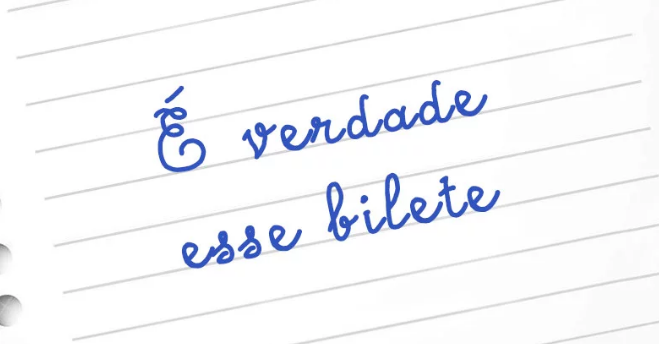 É verdade
esse bilete